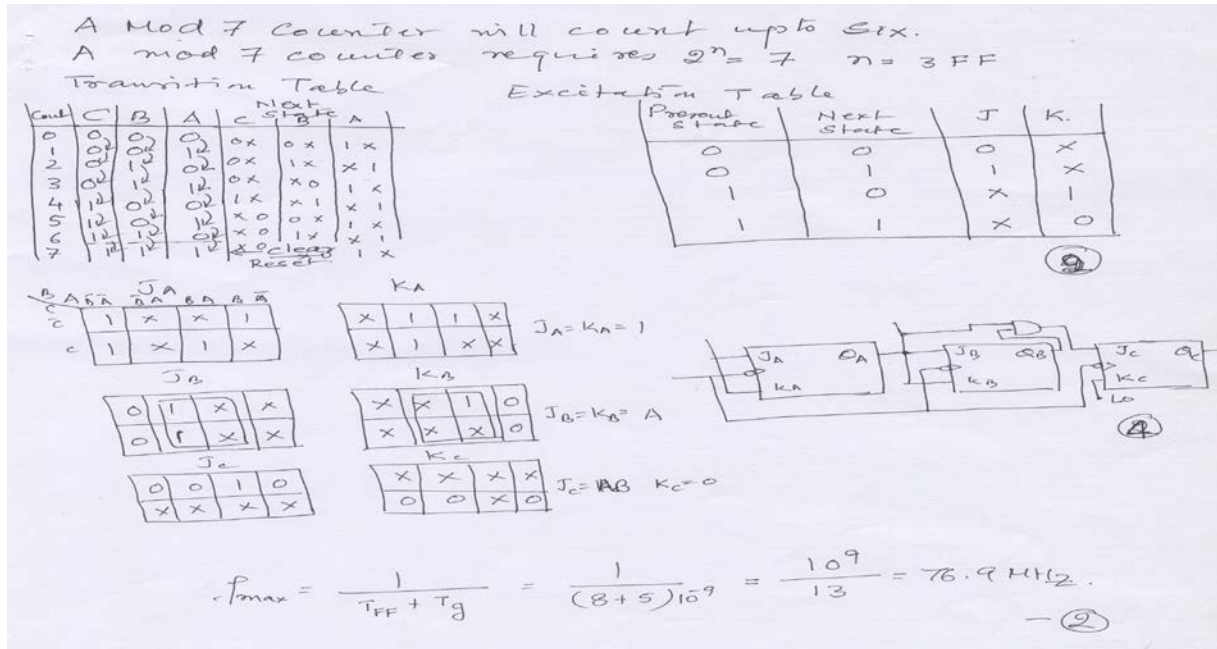 A Mod 7 Counter will count upto Six.
A mod 7 counter requires 2ⁿ = 7 n = 3 FF
Transition Table
Excitation Table
Count C B A Next State C B A
0 0 0 0 0x 0x 1x
1 0 0 1 0x 1x x1
2 0 1 0 0x x0 1x
3 0 1 1 1x x1 x1
4 1 0 0 x0 0x 1x
5 1 0 1 x0 1x x1
6 1 1 0 x0 1x
7 1 1 1
clear
Reset
Present State Next State J K.
0 0 0 X
0 1 1 X
1 0 X 1
1 1 X 0
J A
B A B̄Ā B̄A BA BĀ
C
C̄ 1 X X 1
C 1 X 1 X
KA
X 1 1 X
X 1 X X
JA = KA = 1
JB
0 1 X X
0 1 X X
KB
X X 1 0
X X X 0
JB = KB = A
JC
0 0 1 0
X X X X
KC
X X X X
0 0 X 0
JC = AB KC = 0
JA QA
KA
JB QB
KB
JC QC
KC
LO
4
fmax = 1 / (TFF + Tg) = 1 / (8+5)10⁻⁹ = 10⁹ / 13 = 76.9 MHz.
- 2